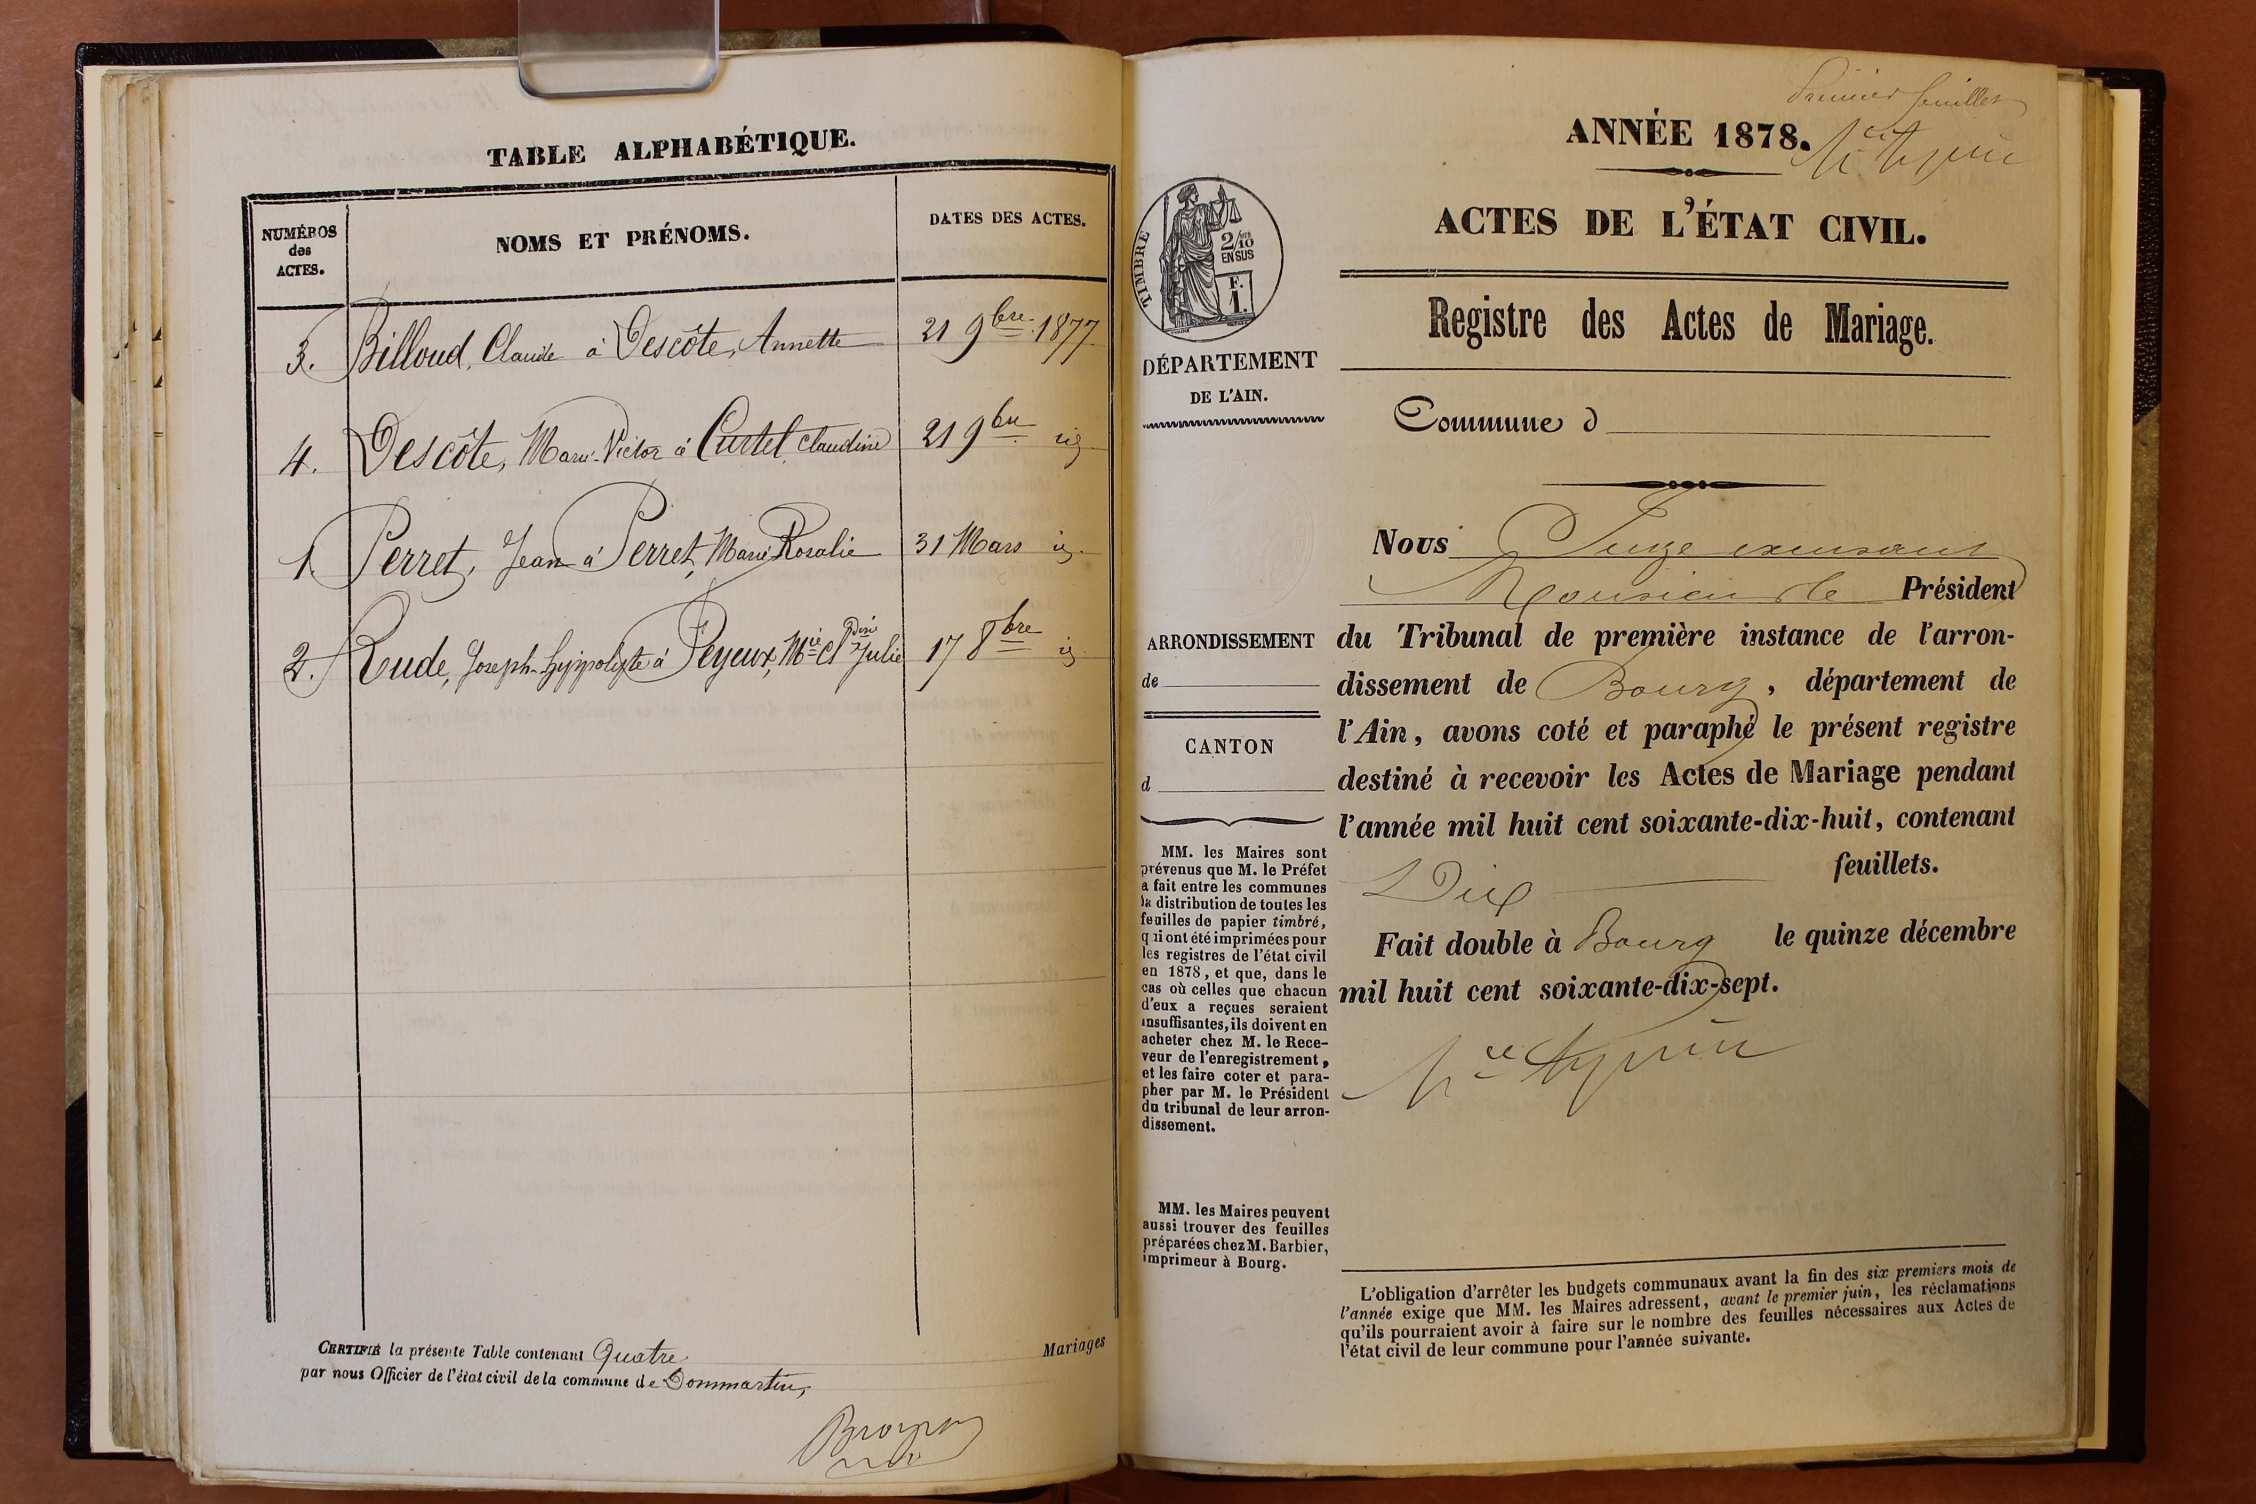 TABLE ALPHABÉTIQUE.
NUMÉROS
des
ACTES.
NOMS ET PRÉNOMS.
DATES DES ACTES.
3. Billoud, Claude à Descôte, Annette 21 9bre 1877
4. Descôte, Marie-Victor à Curtet Claudine 21 9bre
1 Perret, Jean à Perret, Marie Rosalie 31 Mars
2. Rude, Joseph-hyppolyte à Peyeux, Mie Cldine Julie 17 8bre
CERTIFIÉ la présente Table contenant Quatre Mariages
par nous Officier de l'état civil de la commune de Dommartin,
Premier feuillet
ANNÉE 1878.
ACTES DE L'ÉTAT CIVIL.
TIMBRE
2/10
EN SUS
F.
1.
DÉPARTEMENT
DE L'AIN.
Registre des Actes de Mariage.
Commune d
Nous Juge
Monsieur le Président
du Tribunal de première instance de l'arron-
dissement de Bourg, département de
l'Ain, avons coté et paraphé le présent registre
destiné à recevoir les Actes de Mariage pendant
l'année mil huit cent soixante-dix-huit, contenant
Dix feuillets.
Fait double à Bourg le quinze décembre
mil huit cent soixante-dix-sept.
ARRONDISSEMENT
de
CANTON
d
MM. les Maires sont
prévenus que M. le Préfet
a fait entre les communes
la distribution de toutes les
feuilles de papier timbré,
qui ont été imprimées pour
les registres de l'état civil
en 1878, et que, dans le
cas où celles que chacun
d'eux a reçues seraient
insuffisantes, ils doivent en
acheter chez M. le Rece-
veur de l'enregistrement,
et les faire coter et para-
pher par M. le Président
du tribunal de leur arron-
dissement.
MM. les Maires peuvent
aussi trouver des feuilles
préparées chez M. Barbier,
imprimeur à Bourg.
L'obligation d'arrêter les budgets communaux avant la fin des six premiers mois de
l'année exige que MM. les Maires adressent, avant le premier juin, les réclamations
qu'ils pourraient avoir à faire sur le nombre des feuilles nécessaires aux Actes de
l'état civil de leur commune pour l'année suivante.